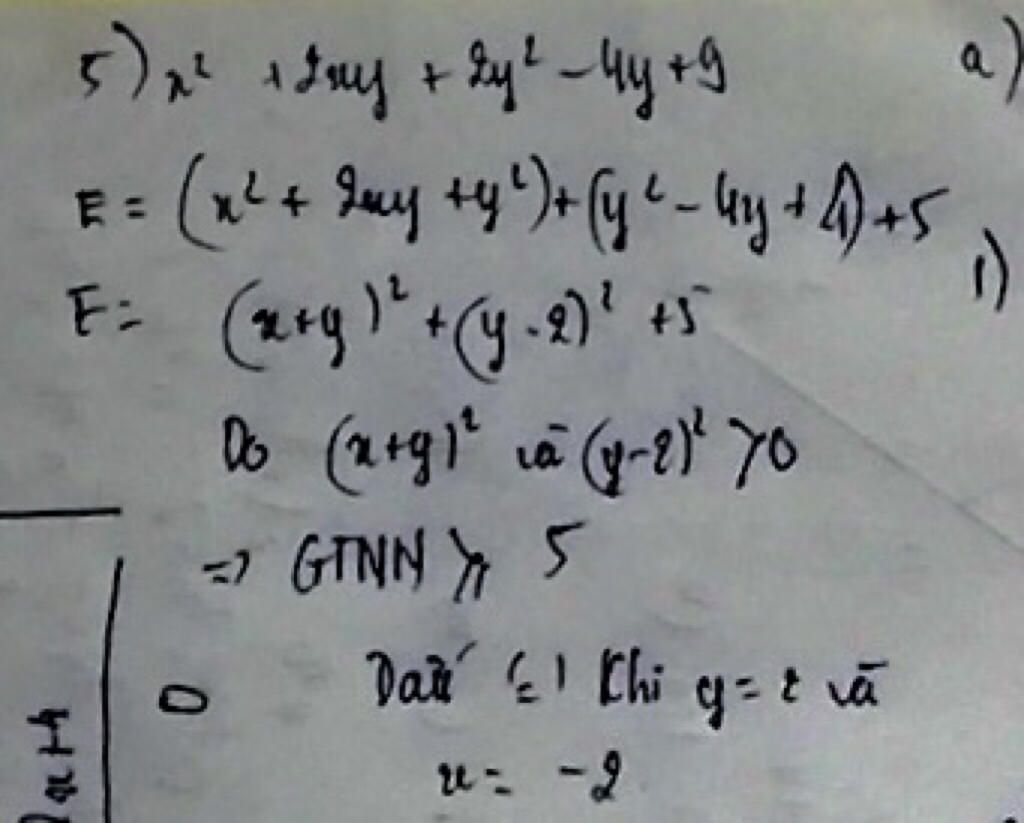 5) x² + 2xy + 2y² - 4y + 9
a)
E = (x² + 2xy + y²) + (y² - 4y + 4) + 5
1)
E = (x+y)² + (y-2)² + 5
Do (x+y)² và (y-2)² >0
=> GTNN ≥ 5
Dấu "=" Khi y = 2 và
x = -2